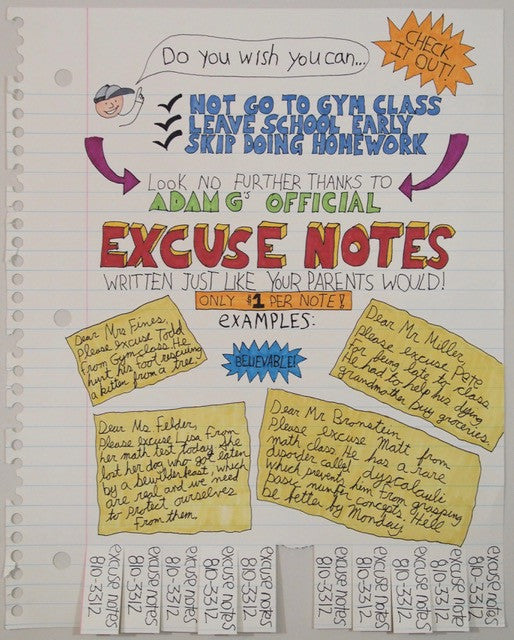 Do you wish you can...
CHECK IT OUT!
NOT GO TO GYM CLASS
LEAVE SCHOOL EARLY
SKIP DOING HOMEWORK
LOOK NO FURTHER THANKS TO
ADAM G'S OFFICIAL
EXCUSE NOTES
WRITTEN JUST LIKE YOUR PARENTS WOULD!
ONLY $1 PER NOTE!
EXAMPLES:
Dear Mrs Fines,
Please excuse Todd
From Gym class. He
hurt his foot rescuing
a kitten from a tree.
BELIEVABLE!
Dear Mr Miller,
please excuse Pete
For being late to class
He had to help his dying
grandmother buy groceries.
Dear Ms. Felder,
Please excuse Lisa From
her math test today. She
lost her dog who got eaten
by a bewilderbeast, which
are real and we need
to protect ourselves
From them.
Dear Mr Bronstein,
Please excuse Matt from
math class. He has a rare
disorder called dyscalculi
which prevents him from grasping
basic number concepts. Hell
be better by Monday.
excuse notes
810-3312
excuse notes
810-3312
excuse notes
810-3312
excuse notes
810-3312
excuse notes
810-3312
excuse notes
810-3312
excuse notes
810-3312
excuse notes
810-3312
excuse notes
810-3312
excuse notes
810-3312